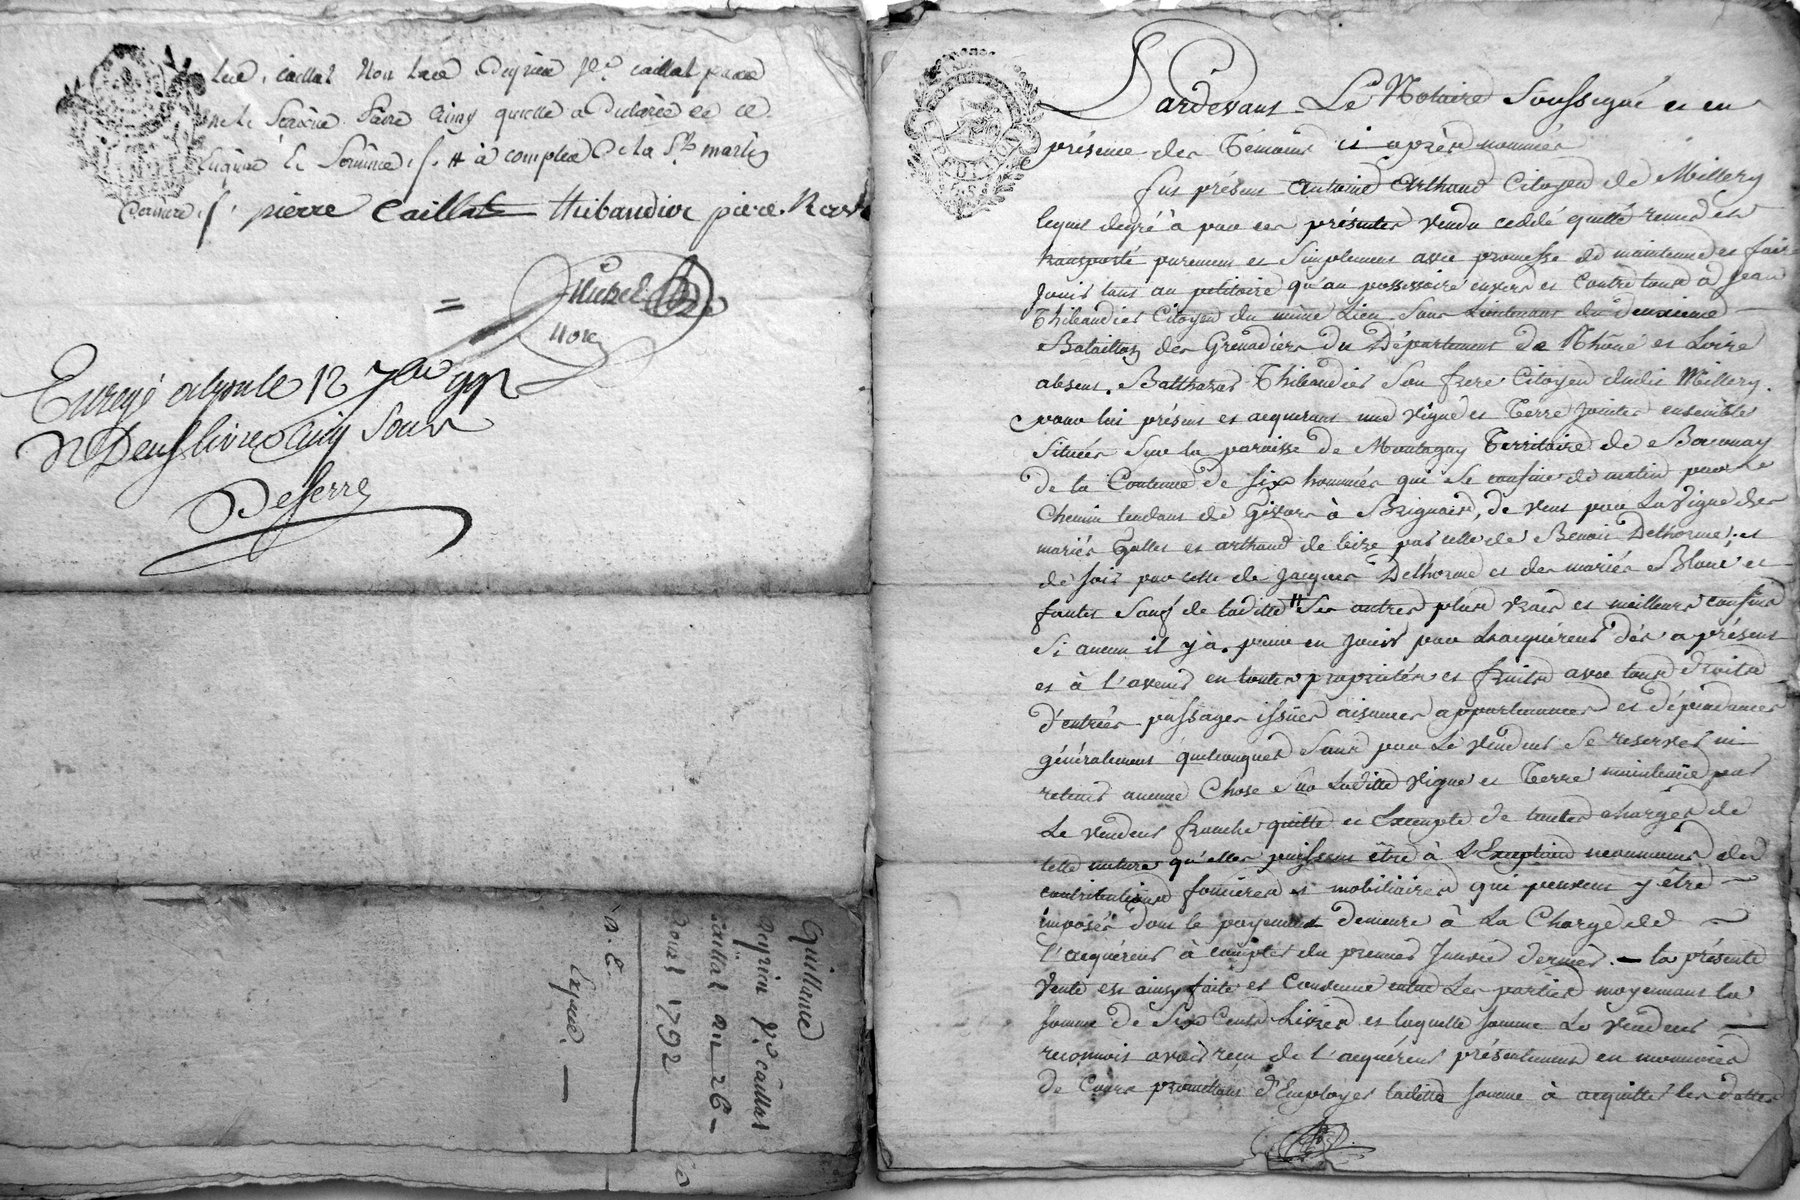 caillat non
a Déclarée de ce
Enquise & Sommée ./. # à compter de la St martin
pierre Caillat Thibaudier pierre
=
Nore
Enregé 18
Deux livres Cinq Sous
Deserre
Guillaume
Caillat
aout 26
aout 1792
Expedié. —
Pardevant Le Notaire Soussigné et en
présence des Témoins ci après nommés
fut présent Antoine Arthaud Citoyen de Millery
lequel de gré à par ces présentes vendu ceddé quitté remis et
transporté purement et Simplement avec promesse de maintenir et faire
Jouir tant au petitoire qu'au possessoire envers et Contre tous à Jean
Thibaudier Citoyen du même Lieu Sous Lieutenant du deuxieme
Bataillon des Grenadiers du Département de Rhône et Loire
absent. Balthazar Thibaudier Son frere Citoyen dudit Millery.
pour lui présent et acquerant une vigne et Terre Jointes ensemble
Situées Sur la paroisse de Montagny Territoire de
de la Contenue de Six hommées qui Se confine de matin par le
Chemin tendant de Givors à Brignais, de vent par La Vigne des
mariés et arthaud de bize par celle de Benoit Delhorme, et
de soir par celle de Jacques Delhorme et des mariés Blanc et
Sauf de laditte # Ses autres plus vrais et meilleurs confins
Si aucun il y à. pour en Jouir par L'acquéreur dès a présent
et à l'avenir en toutes propriétés et fruits avec tous droits
d'entrées passages issües aisances appartenances et dépendances
généralement quelconques Sans par Le Vendeur Se reserver ni
retenir aucune Chose Sur Laditte Vigne et Terre maintenüe par
Le Vendeur franche quitte et Exempte de toutes charges de
telle nature qu'elles puissent être à L'Exception néanmoins des
contributions foncières et mobiliaires qui peuvent y être
imposés dont le payement demeure à La Charge de
l'acquéreur à compter du premier Janvier dernier. — la présente
Vente est ainsy faite et Convenue entre Les parties moyennant la
somme de Six Cents Livres et laquelle somme Le Vendeur
reconnoit avoir reçu de l'acquéreur présentement en monnoies
de Cours promettant d'Employer laditte somme à acquitter les dettes